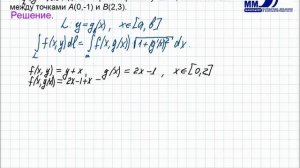 между точками A(0,-1) и B(2,3).
ММ
Решение.
L: y=g(x), x∈[a,b]
∫_L f(x,y)dl = ∫_a^b f(x,g(x)) √(1+(g'(x))²) dx.
f(x,y) = y+x, g(x) = 2x-1, x∈[0,2]
f(x,g(x)) = 2x-1+x -